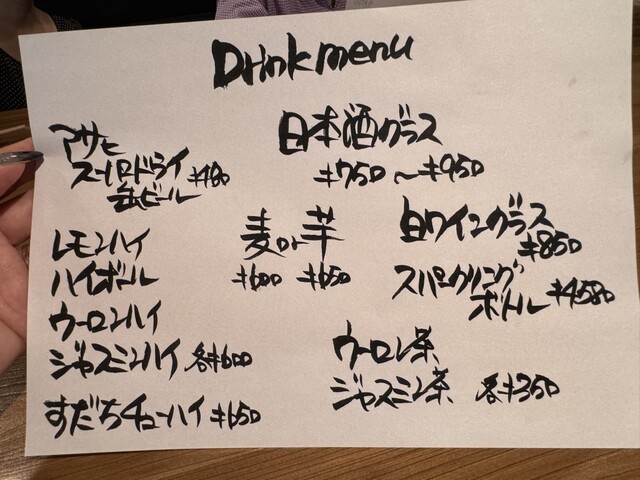 Drink menu
アサヒ
スーパードライ
缶ビール ¥480
日本酒グラス
¥750〜¥950
レモンハイ
ハイボール
ウーロンハイ
ジャスミンハイ 各¥600
すだちチューハイ ¥650
麦 or 芋
¥600 ¥650
白ワイングラス
¥850
スパークリング
ボトル ¥4580
ウーロン茶
ジャスミン茶 各¥350